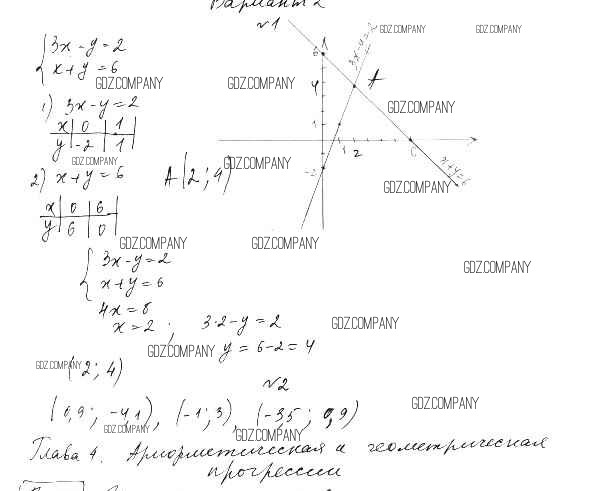 Вариант 2
№1
{3x - y = 2
{x + y = 6
GDZ.COMPANY GDZ.COMPANY
GDZ.COMPANY GDZ.COMPANY GDZ.COMPANY
1) 3x - y = 2
x | 0 | 1
y | -2 | 1
GDZ.COMPANY GDZ.COMPANY
2) x + y = 6 A(2; 4)
x | 0 | 6
y | 6 | 0
6
4
1
-2
1 2
A
3x-y=2
x+y=6
GDZ.COMPANY
GDZ.COMPANY GDZ.COMPANY
{3x - y = 2
{x + y = 6
GDZ.COMPANY
4x = 8
x = 2; 3·2 - y = 2
GDZ.COMPANY
GDZ.COMPANY y = 6 - 2 = 4
GDZ.COMPANY
(2; 4)
№2
GDZ.COMPANY
(0,9; -4,1), (-1; 3), (-3,5; 0,9)
GDZ.COMPANY GDZ.COMPANY
Глава 4. Арифметическая и геометрическая
прогрессии